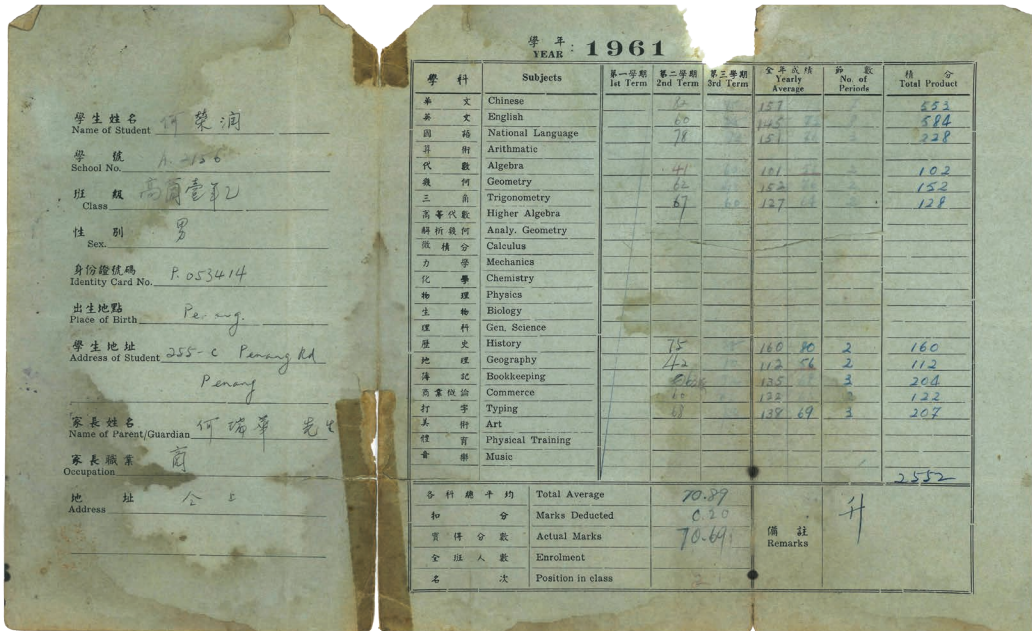 學生姓名
Name of Student 何榮潤
學號
School No. A. 2156
班級
Class 高商壹
性別 男
Sex.
身份證號碼
Identity Card No. P. 053414
出生地點
Place of Birth
學生地址
Address of Student 255-C Penang Rd
Penang
家長姓名
Name of Parent/Guardian 何瑞華 先生
家長職業 商
Occupation
地址
Address 仝上
學年
YEAR : 1961
學科 Subjects 第一學期 1st Term 第二學期 2nd Term 第三學期 3rd Term 全年成績 Yearly Average 節數 No. of Periods 積分 Total Product
華文 Chinese 82 157 553
英文 English 60 145 584
國語 National Language 78 151 228
算術 Arithmatic
代數 Algebra 41 101 102
幾何 Geometry 62 152 152
三角 Trigonometry 67 60 127 128
高等代數 Higher Algebra
解析幾何 Analy. Geometry
微積分 Calculus
力學 Mechanics
化學 Chemistry
物理 Physics
生物 Biology
理科 Gen. Science
歷史 History 75 160 80 2 160
地理 Geography 42 112 56 2 112
簿記 Bookkeeping 135 3 204
商業概論 Commerce 60 122 122
打字 Typing 138 69 3 207
美術 Art
體育 Physical Training
音樂 Music
2552
各科總平均 Total Average 70.89
扣分 Marks Deducted 0.20
實得分數 Actual Marks 70.69
全班人數 Enrolment
名次 Position in class 2
備註
Remarks
升